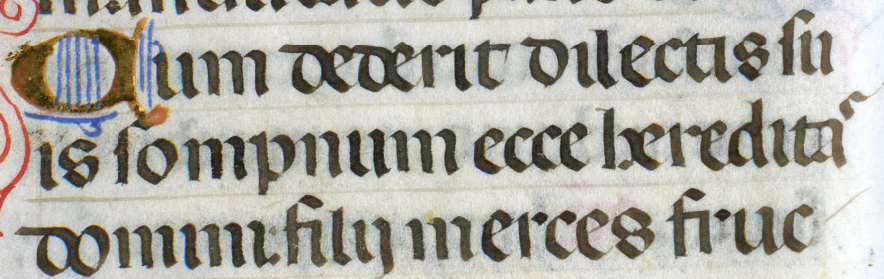 Cum dederit dilectis su
is sompnum ecce heredita
domini: filij merces fruc